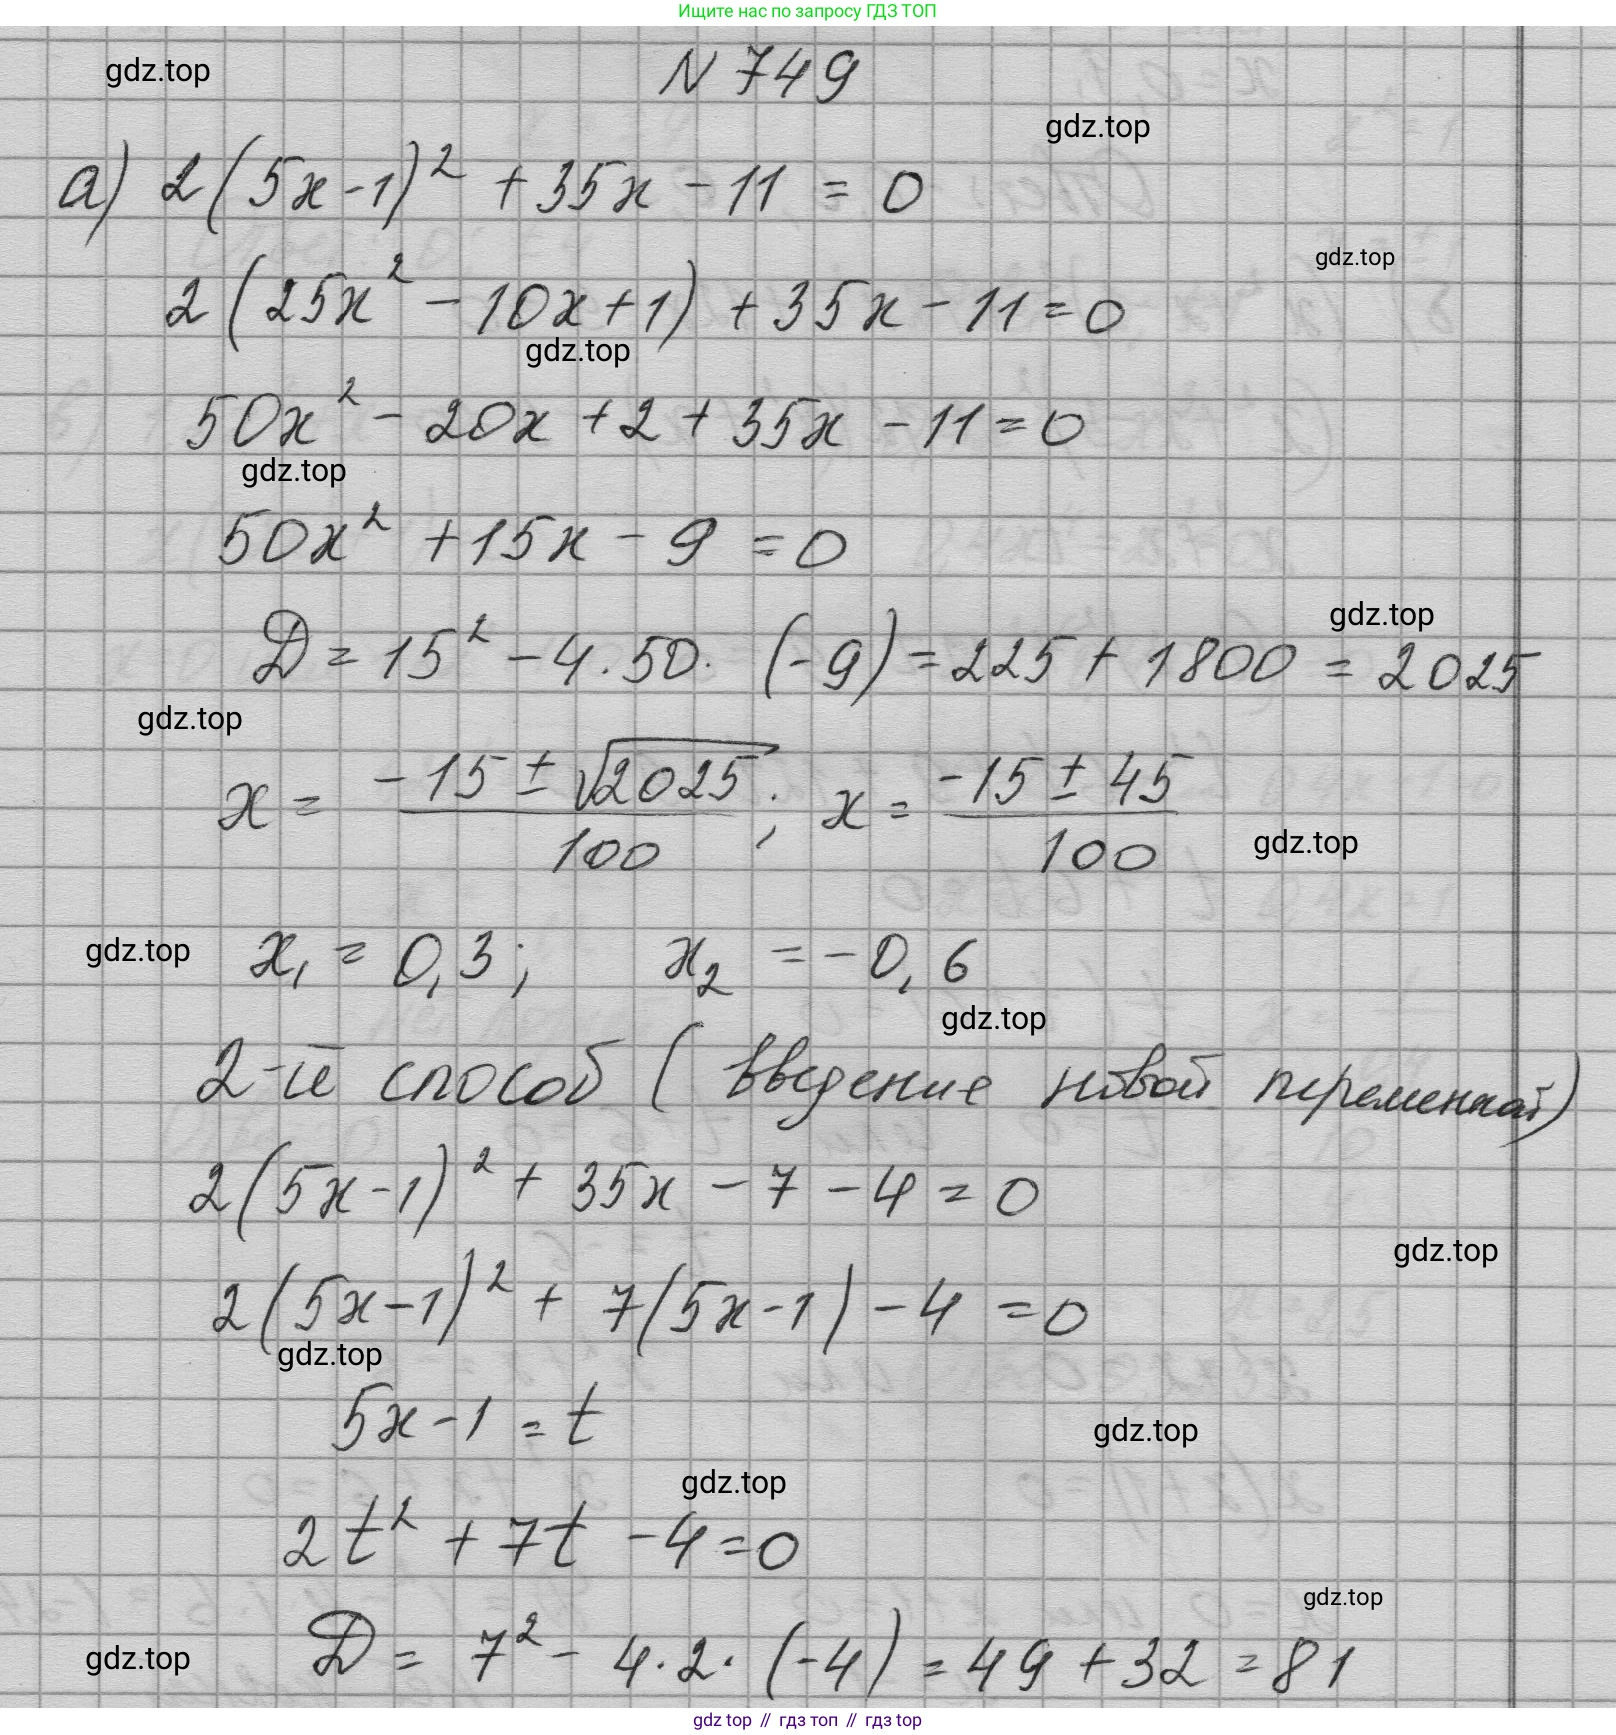 Ищите нас по запросу ГДЗ ТОП
N 749
gdz.top
gdz.top
а) 2(5x-1)² + 35x - 11 = 0
gdz.top
2(25x² - 10x + 1) + 35x - 11 = 0
gdz.top
50x² - 20x + 2 + 35x - 11 = 0
gdz.top
50x² + 15x - 9 = 0
gdz.top
D = 15² - 4·50·(-9) = 225 + 1800 = 2025
gdz.top
x = (-15 ± √2025)/100; x = (-15 ± 45)/100
gdz.top
gdz.top
x₁ = 0,3; x₂ = -0,6
gdz.top
2-й способ (введение новой переменной)
2(5x-1)² + 35x - 7 - 4 = 0
gdz.top
2(5x-1)² + 7(5x-1) - 4 = 0
gdz.top
5x-1 = t
gdz.top
gdz.top
2t² + 7t - 4 = 0
gdz.top
D = 7² - 4·2·(-4) = 49 + 32 = 81
gdz.top
gdz top // гдз топ // gdz top